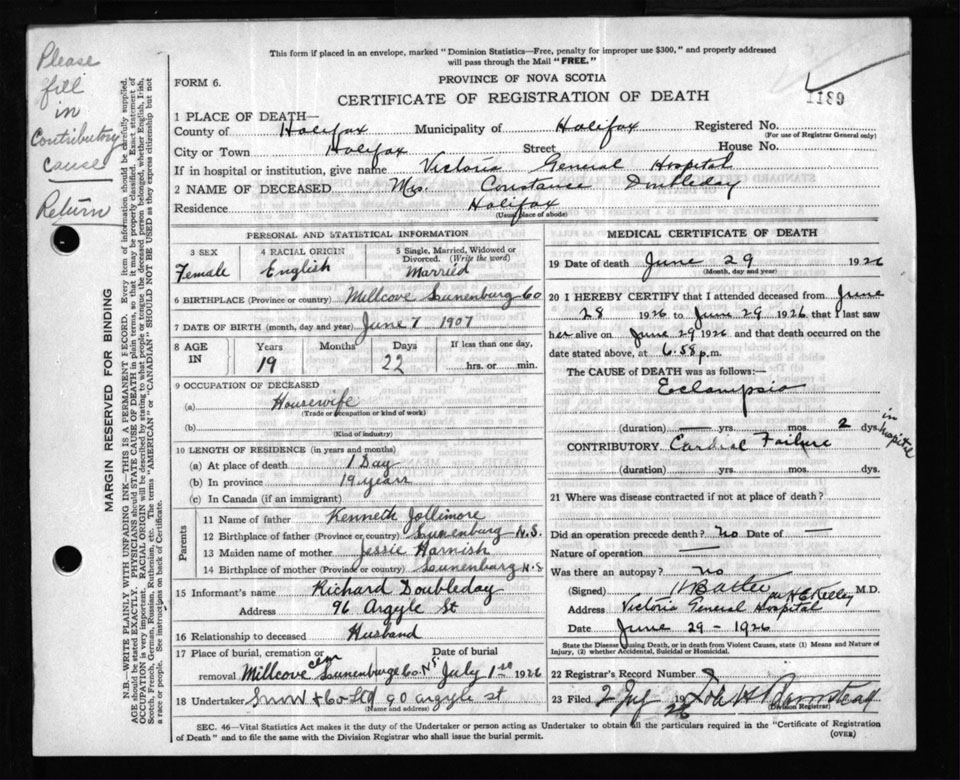 This form if placed in an envelope, marked "Dominion Statistics—Free, penalty for improper use $300," and properly addressed
will pass through the Mail "FREE."
Please
fill
in
Contributory
cause
Return
MARGIN RESERVED FOR BINDING
N.B.—WRITE PLAINLY WITH UNFADING INK—THIS IS A PERMANENT RECORD. Every item of information should be carefully supplied.
AGE should be stated EXACTLY. PHYSICIANS should STATE CAUSE OF DEATH in plain terms, so that it may be properly classified. Exact statement of
OCCUPATION is very important. RACIAL ORIGIN will be described by stating to what people or tongue the deceased person belonged, whether English, Irish,
Scotch, French, German, Russian, Ruthenian, etc. The terms "AMERICAN" or "CANADIAN" SHOULD NOT BE USED as they express citizenship but not
a race or people. See instructions on back of Certificate.
FORM 6.
PROVINCE OF NOVA SCOTIA
CERTIFICATE OF REGISTRATION OF DEATH
1 PLACE OF DEATH—
County of Halifax Municipality of Halifax Registered No.
(For use of Registrar General only)
City or Town Halifax Street House No.
If in hospital or institution, give name Victoria General Hospital
2 NAME OF DECEASED Mrs. Constance Doubleday
Residence Halifax
(Usual place of abode)
PERSONAL AND STATISTICAL INFORMATION
3 SEX Female
4 RACIAL ORIGIN English
5 Single, Married, Widowed or Divorced. (Write the word) Married
6 BIRTHPLACE (Province or country) Millcove Lunenburg Co
7 DATE OF BIRTH (month, day and year) June 7 1907
8 AGE IN Years 19 Months Days 22 If less than one day, hrs. or min.
9 OCCUPATION OF DECEASED
(a) Housewife
(Trade or occupation or kind of work)
(b)
(Kind of industry)
10 LENGTH OF RESIDENCE (in years and months)
(a) At place of death 1 Day
(b) In province 19 years
(c) In Canada (if an immigrant)
Parents
11 Name of father Kenneth Jollimore
12 Birthplace of father (Province or country) Lunenburg N.S.
13 Maiden name of mother Jessie Harnish
14 Birthplace of mother (Province or country) Lunenburg N.S
15 Informant's name Richard Doubleday
Address 96 Argyle St
16 Relationship to deceased Husband
17 Place of burial, cremation or removal Millcove Cem Lunenburg Co. NS
Date of burial July 1st 1926
18 Undertaker Snow & Co Ltd 90 argyle st
(Name and address)
MEDICAL CERTIFICATE OF DEATH
19 Date of death June 29 1926
(Month, day and year)
20 I HEREBY CERTIFY that I attended deceased from June
28 1926 to June 29 1926 that I last saw
her alive on June 29 1926 and that death occurred on
date stated above, at 6.58 p.m.
The CAUSE of DEATH was as follows:—
Eclampsia
(duration) — yrs. — mos. 2 dys. in hospital
CONTRIBUTORY Cardial Failure
(duration) yrs. mos. dys.
21 Where was disease contracted if not at place of death?
Did an operation precede death? No Date of —
Nature of operation —
Was there an autopsy? No
(Signed) M.D.
Address Victoria General Hospital
Date June 29 - 1926
State the Disease causing Death, or in death from Violent Causes, state (1) Means and Nature of
Injury, (2) whether Accidental, Suicidal or Homicidal.
22 Registrar's Record Number
23 Filed 2 July 1926
(Division Registrar)
SEC. 46—Vital Statistics Act makes it the duty of the Undertaker or person acting as Undertaker to obtain all the particulars required in the "Certificate of Registration
of Death" and to file the same with the Division Registrar who shall issue the burial permit.
(OVER)